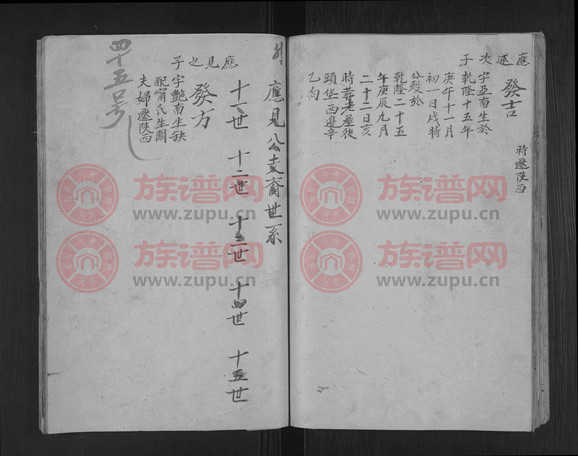 應運次子
發吉
時遷陝西
字亞南生於
乾隆十五年
庚午十一月
初一日戌時
公歿於
乾隆二十五
年庚辰九月
二十二日亥
時葬老屋後
頭堡西邊辛
乙向
應見公支裔世系
十一世 十二世 十三世 十四世 十五世
應見之子
發方
字艷南生缺
配甯氏生闕
夫婦遷陝西
四十五号
族谱网
www.zupu.cn
族谱网
www.zupu.cn
族谱网
www.zupu.cn
族谱网
www.zupu.cn